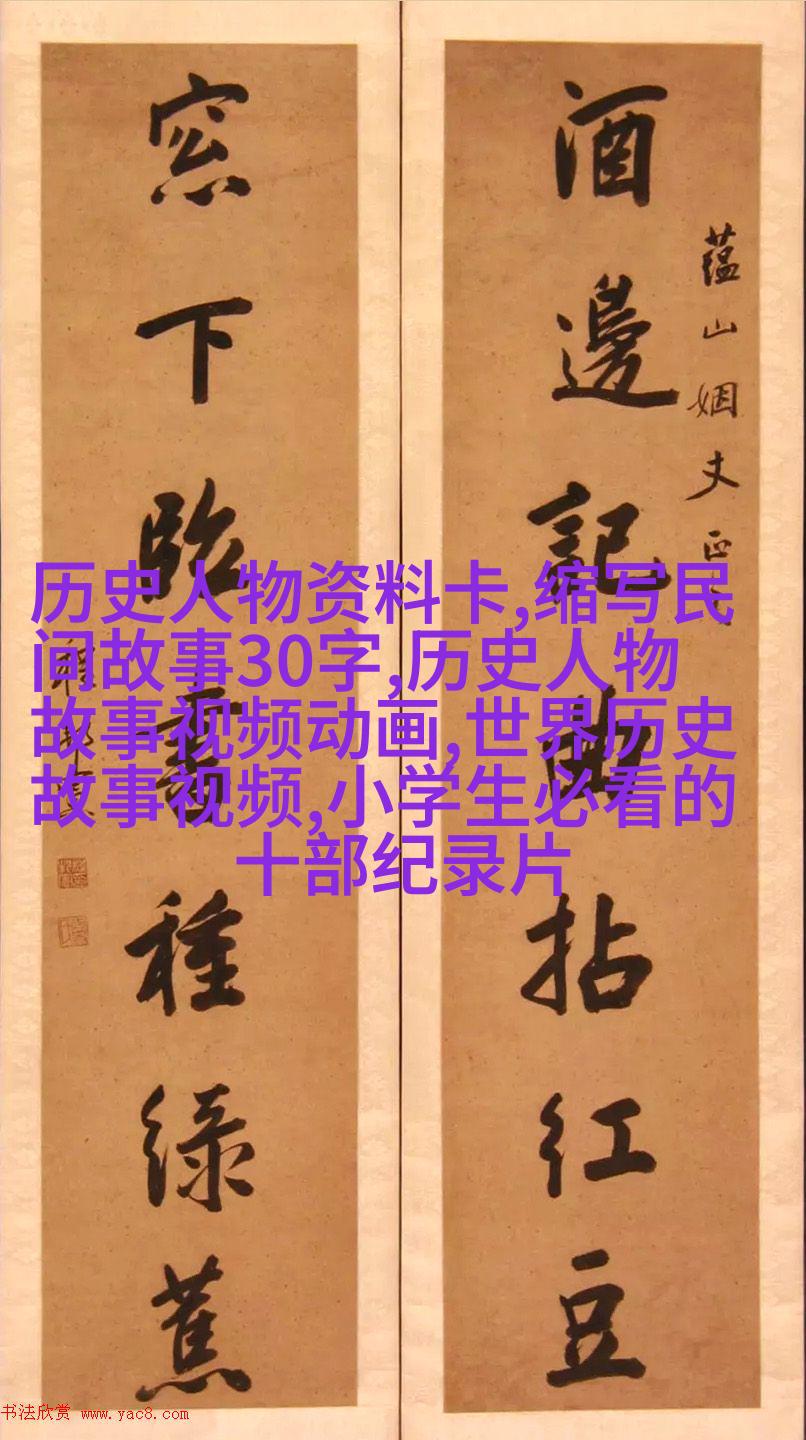 蘊山姻丈正
酒邊記曲拈紅豆
窓下臨書種綠蕉
历史人物资料卡,缩写民
间故事30字,历史人物
故事视频动画,世界历史
故事视频,小学生必看的
十部纪录片
书法欣赏 www.yac8.com